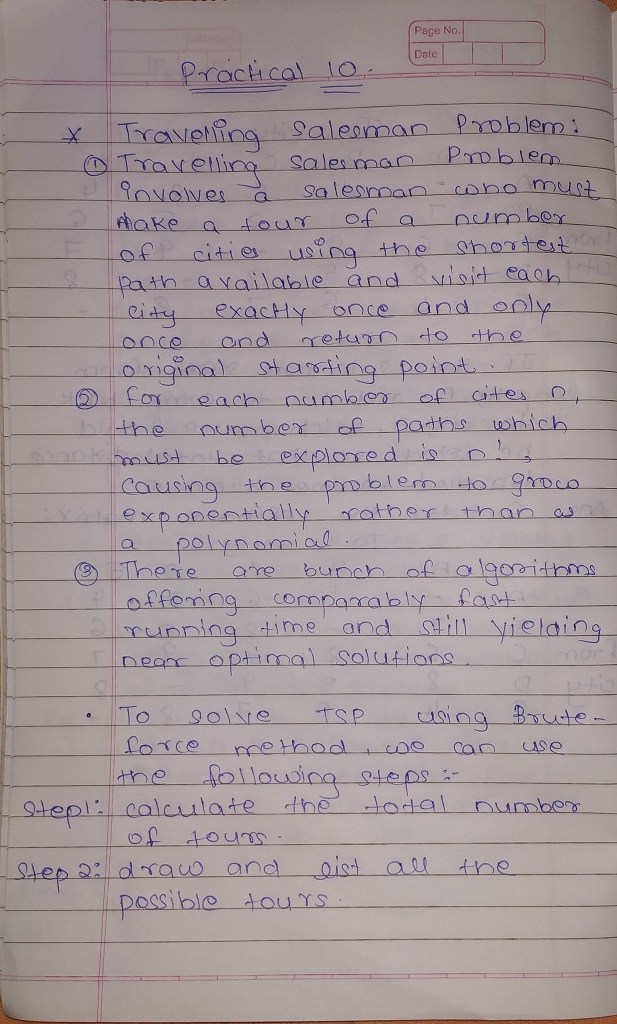 Page No.
Date
Practical 10.
* Travelling Salesman Problem:
① Travelling salesman Problem
involves a salesman who must
make a tour of a number
of cities using the shortest
path available and visit each
city exactly once and only
once and return to the
original starting point.
② for each number of cites n,
the number of paths which
must be explored is n!,
causing the problem to grow
exponentially rather than as
a polynomial.
③ There are bunch of algorithms
offering comparably fast
running time and still yielding
near optimal solutions.
• To solve TSP using Brute-
force method, we can use
the following steps :-
Step1: calculate the total number
of tours.
Step 2: draw and list all the
possible tours.